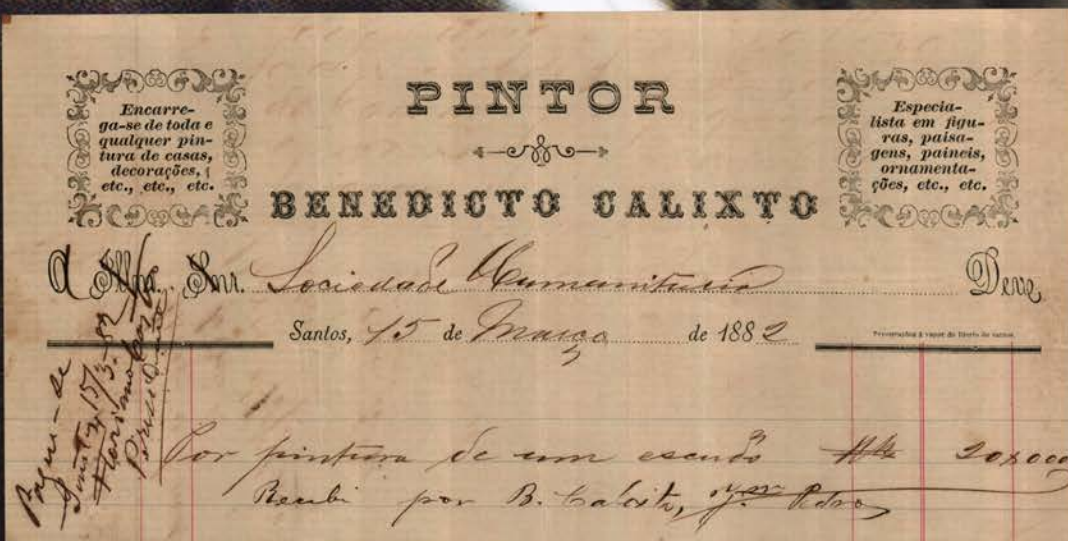 Encarre-
ga-se de toda e
qualquer pin-
tura de casas,
decorações,
etc., etc., etc.
PINTOR
BENEDICTO CALIXTO
Especia-
lista em figu-
ras, paisa-
gens, paineis,
ornamenta-
ções, etc., etc.
A Illm. Snr. Sociedade Humanitaria Deve
Santos, 15 de Março de 1882
Pague-se
Santos 15/3-82
Por pintura de um escudo 20$000
Recebi por B. Calixto, Pedro